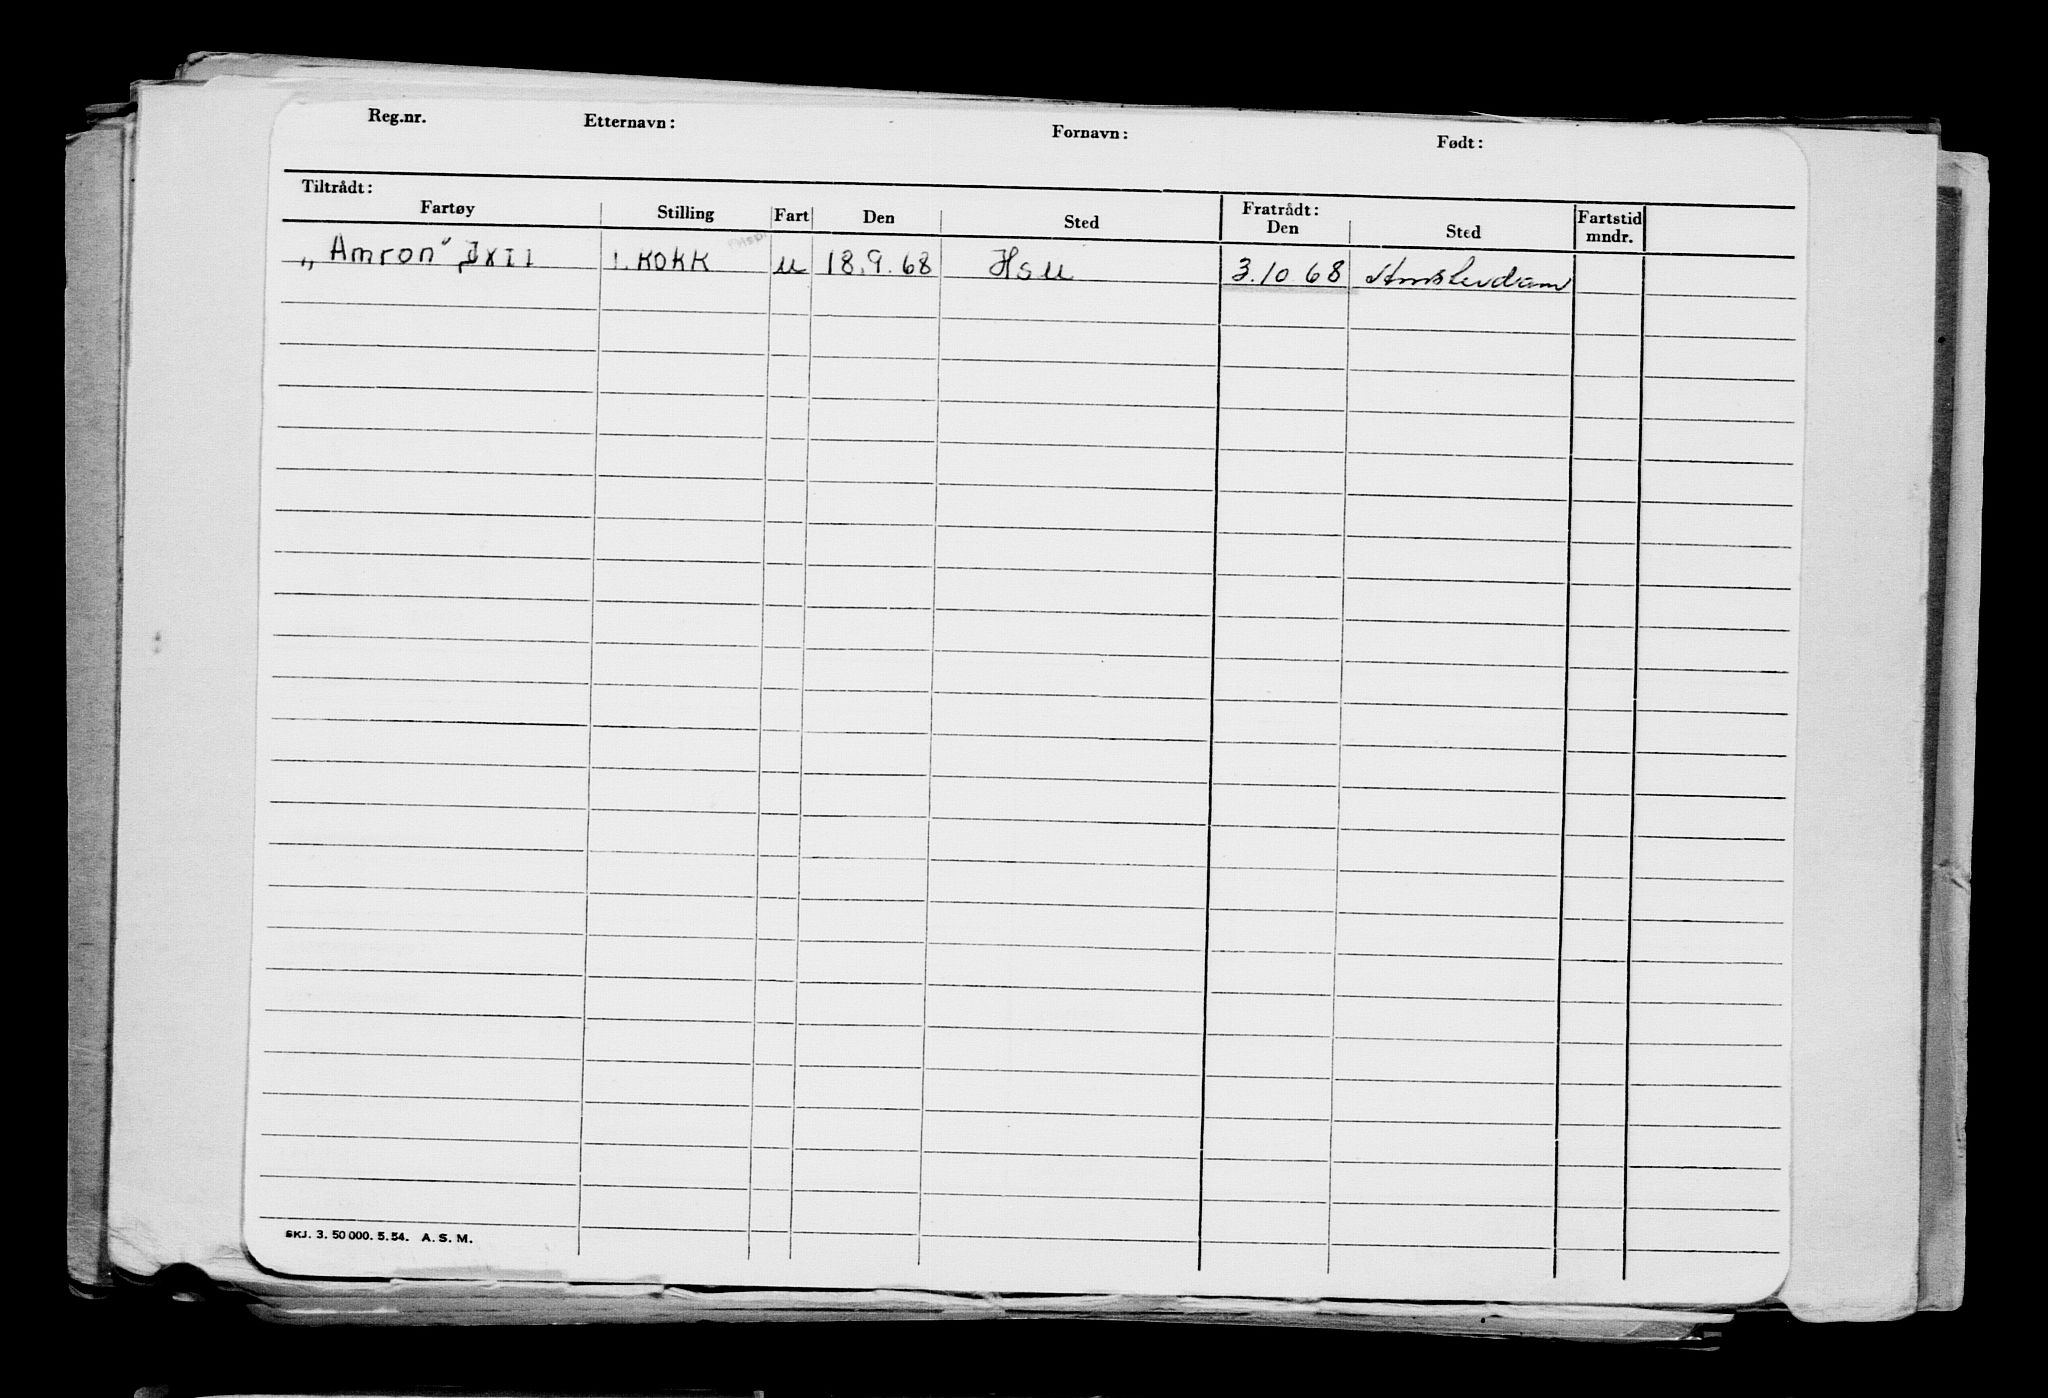 Reg.nr. Etternavn: Fornavn: Født:
Tiltrådt: Fratrådt:
Fartøy Stilling Fart Den Sted Den Sted Fartstid mndr.
„Amron" JXII 1. KOKK u 18.9.68 Hsu 3.10 68 Amsterdam
SKJ. 3. 50 000. 5. 54. A. S. M.